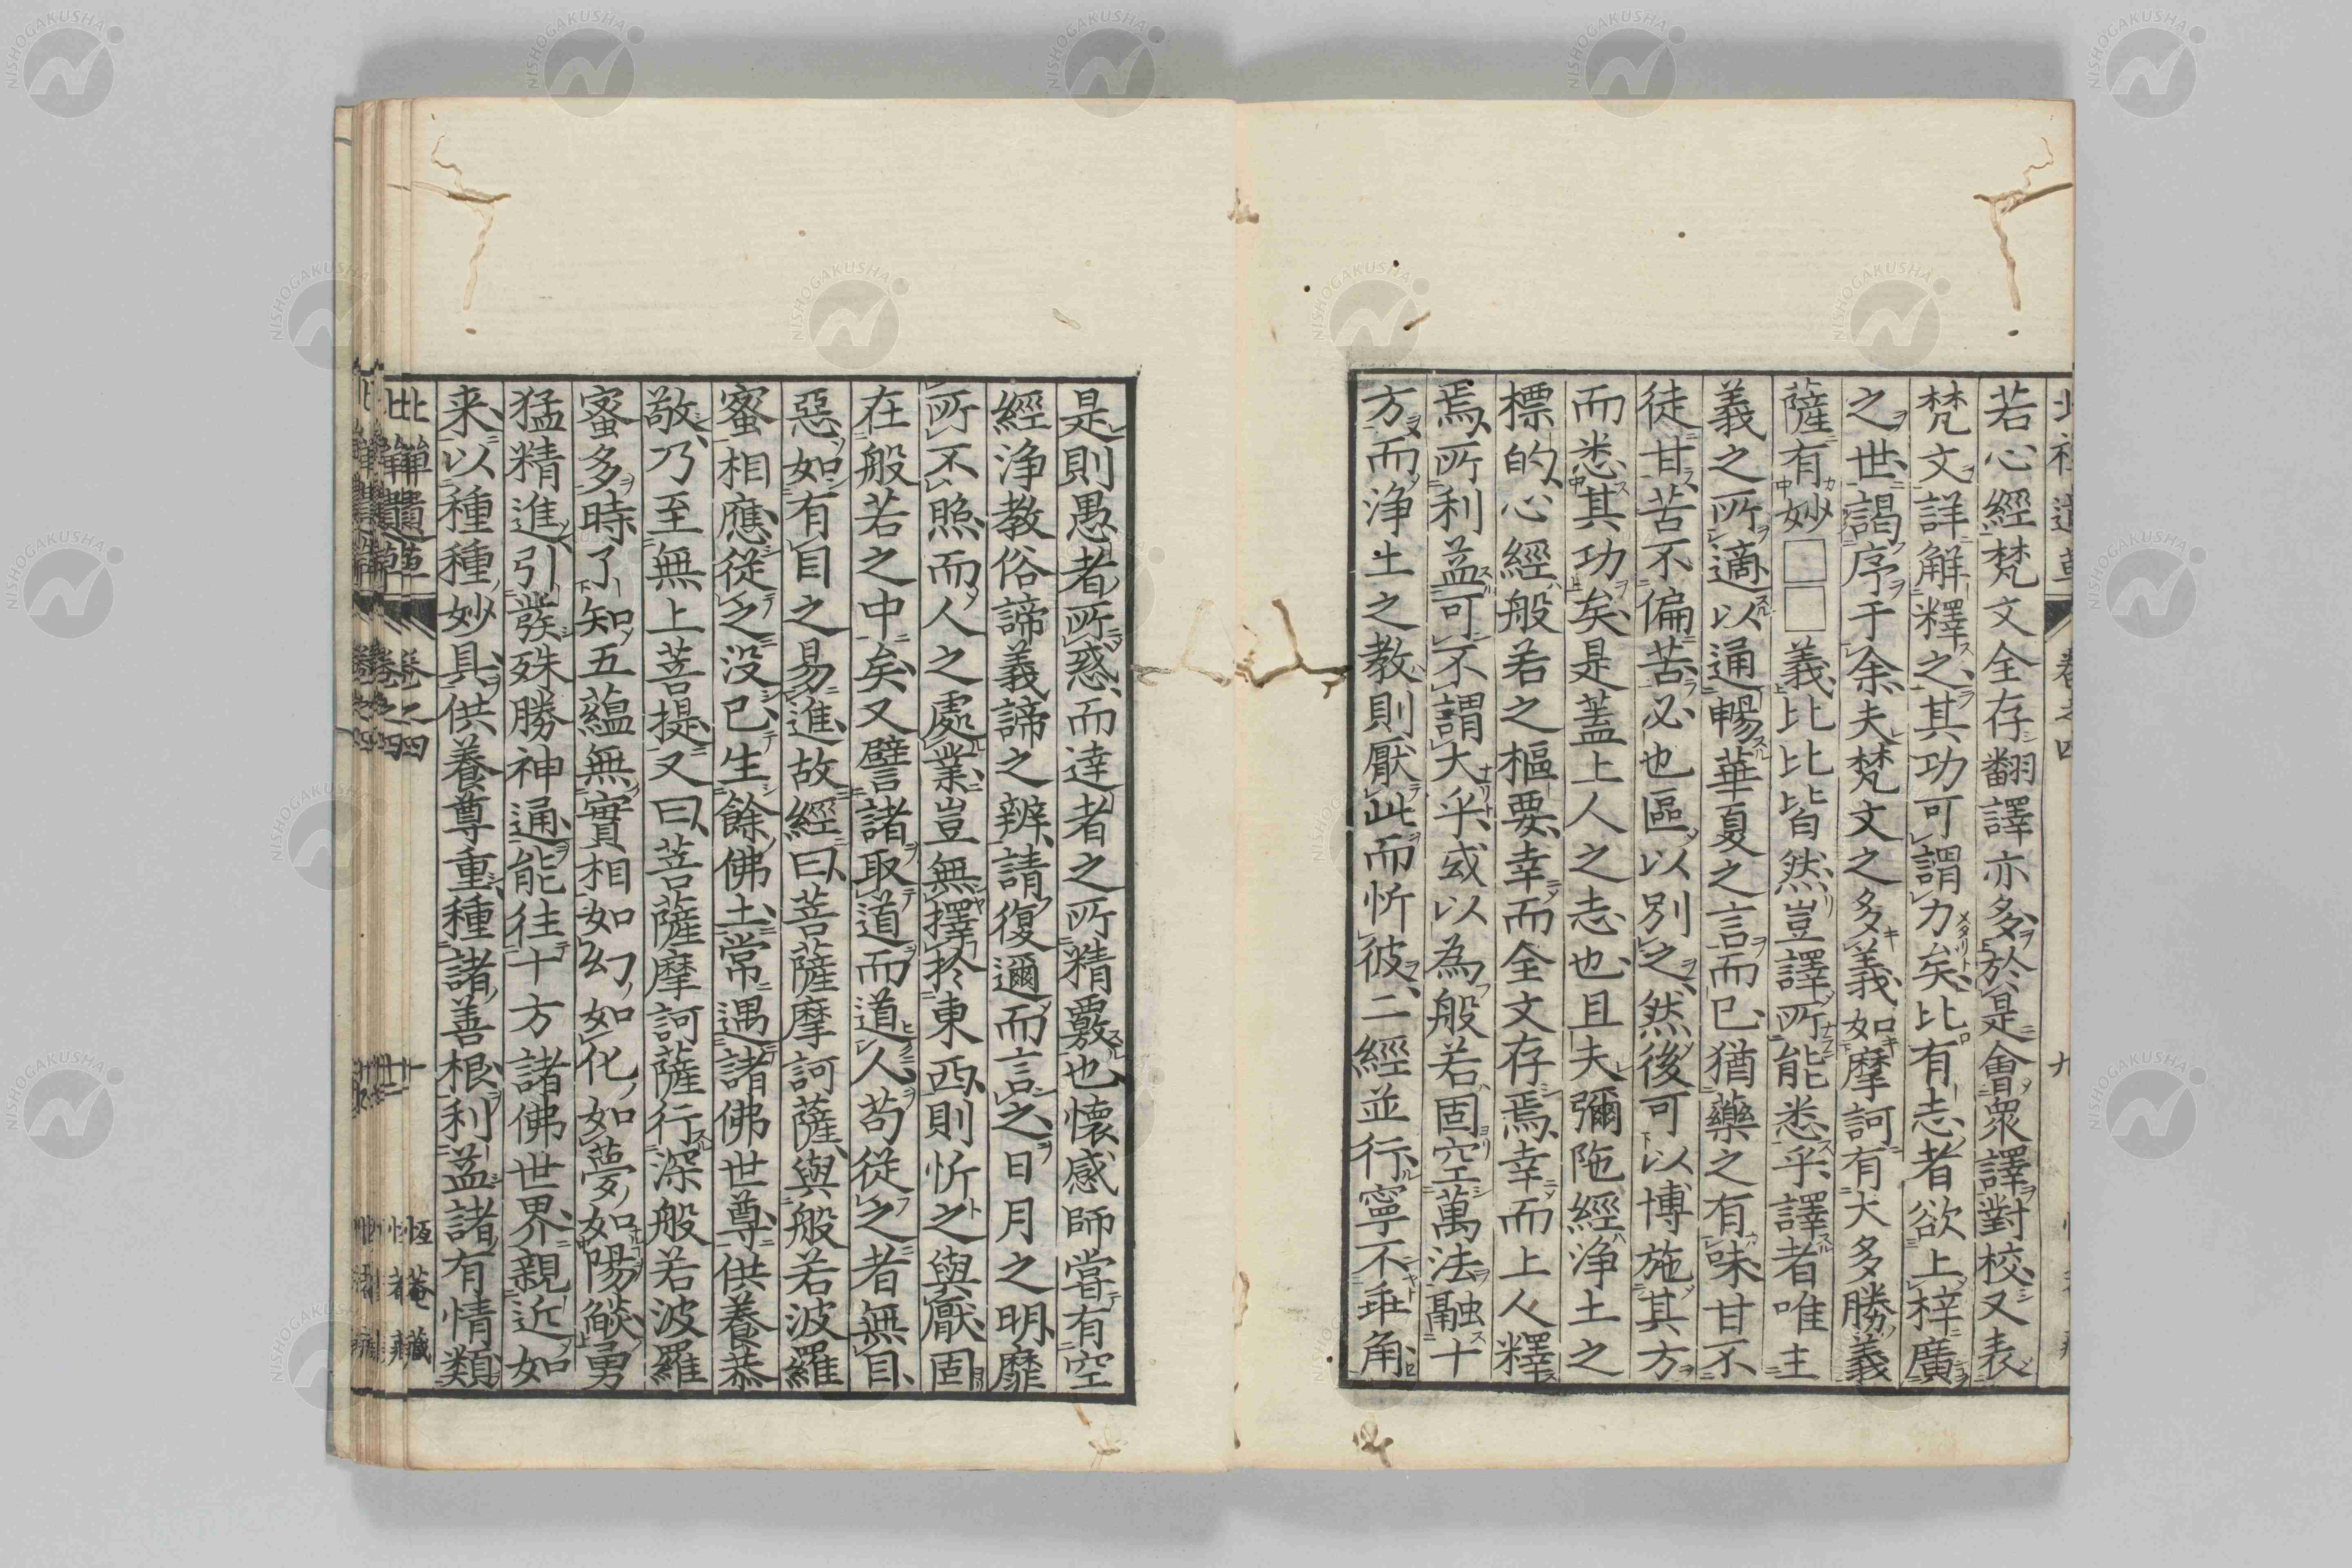 若心經梵文全存翻譯亦多於是會衆譯對校又表
梵文詳解釋之其功可謂力矣比有志者欲上梓廣
之世謁序于余夫梵文之多義如摩訶有大多勝義
薩有妙□□義比比皆然豈譯所能悉乎譯者唯主
義之所適以通暢華夏之言而已猶藥之有味甘不
徒甘苦不偏苦必也區以別之然後可以博施其方
而悉其功矣是蓋上人之志也且夫彌陁經浄土之
標的心經般若之樞要幸而全文存焉幸而上人釋
焉所利益可不謂大乎或以為般若固空萬法融十
方而浄土之教則厭此而忻彼二經並行寧不乖角
是則愚者所惑而達者之所精覈也懐感師嘗有空
經浄教俗諦義諦之辨請復邇而言之日月之明靡
所不照而人之處業豈無擇於東西則忻之與厭固
在般若之中矣又譬諸取道而道人苟從之者無自
惡如有自之易進故經曰菩薩摩訶薩與般若波羅
蜜相應從之没已生餘佛土常遇諸佛世尊供養恭
敬乃至無上菩提又曰菩薩摩訶薩行深般若波羅
蜜多時了知五蘊無實相如幻如化如夢如陽燄勇
猛精進引發殊勝神通能往十方諸佛世界親近如
来以種種妙具供養尊重種諸善根利益諸有情類
卷之四
恆菴藏